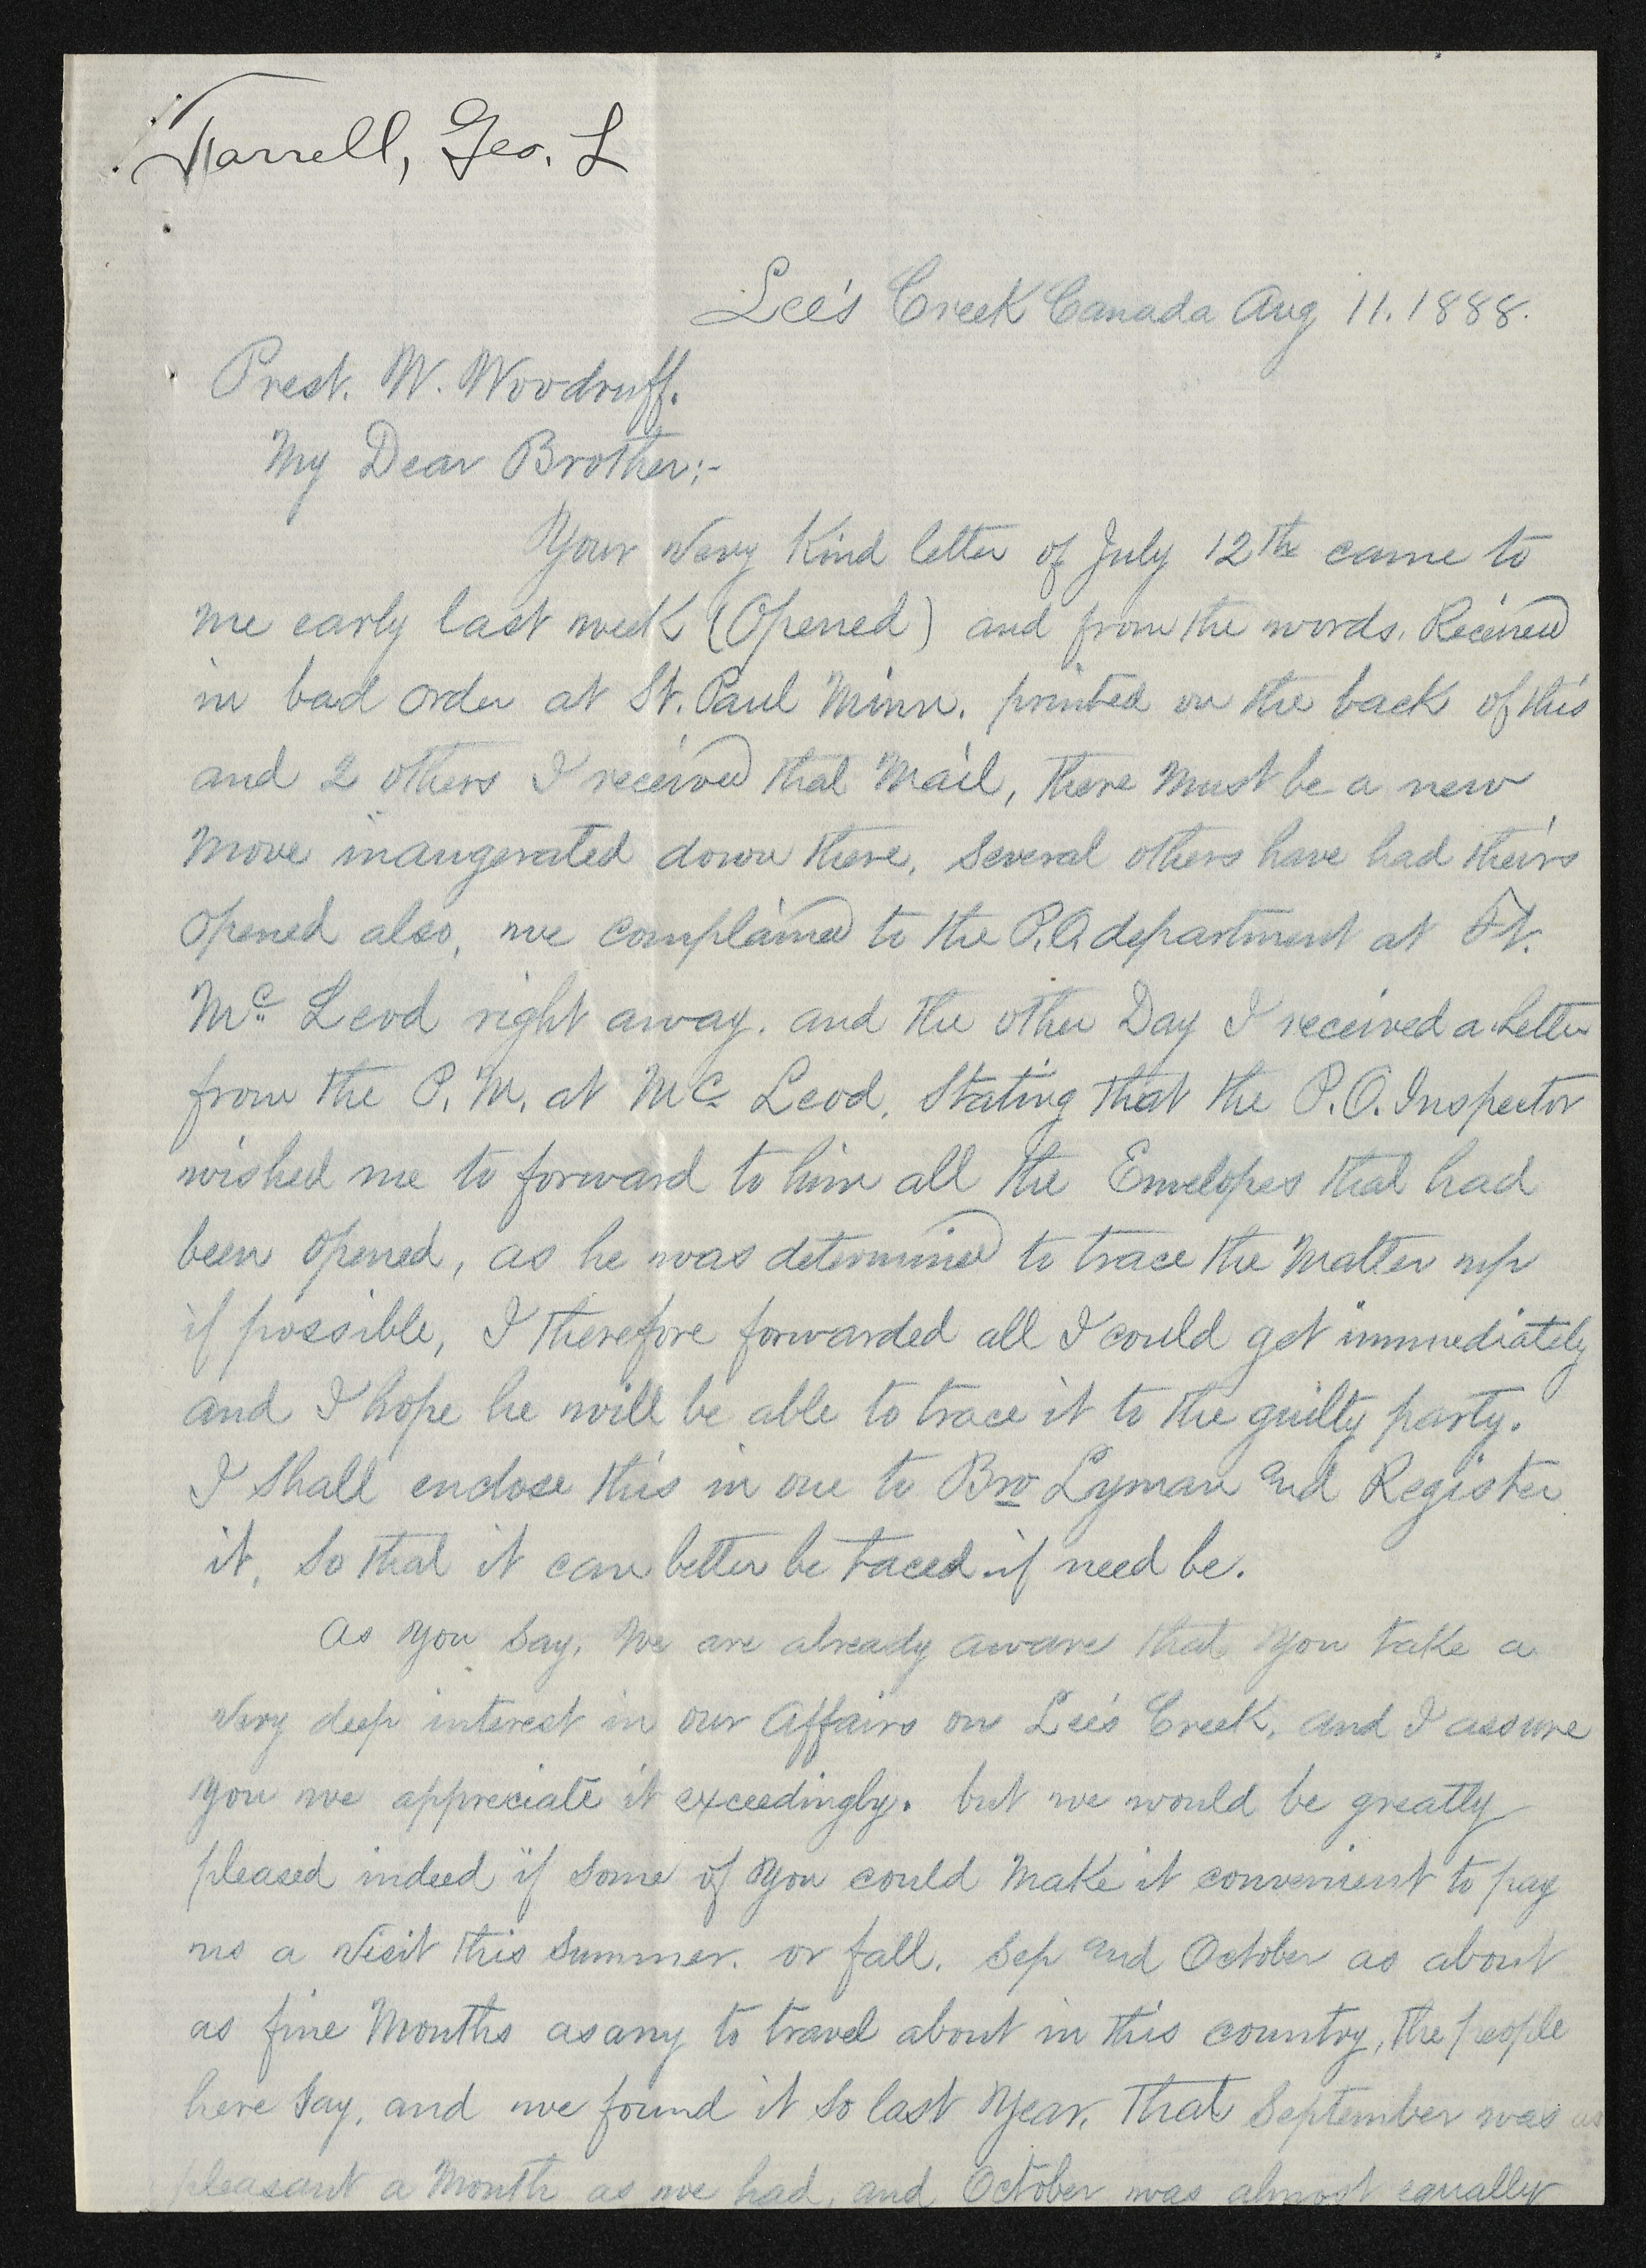 Farrell, Geo. L
Lee's Creek Canada Aug 11. 1888.
Prest. W. Woodruff.
My Dear Brother;-
Your Very Kind letter of July 12th came to
me early last week (Opened) and from the words. Received
in bad order at St. Paul Minn. printed on the back of this
and 2 others I received that Mail, there Must be a new
Move inaugerated down there, Several others have had theirs
opened also, we complained to the P.O. department at Ft.
Mc Leod right away. and the other Day I received a Letter
from the P. M. at Mc Leod, Stating that the P.O. Inspector
wished me to forward to him all the Envelopes that had
been opened, as he was determined to trace the Matter up
if possible, I therefore forwarded all I could get immediately
and I hope he will be able to trace it to the guilty party.
I Shall enclose this in one to Bro Lyman and Register
it, So that it can better be taced if need be.
As You Say, We are already aware that You take a
Very deep interest in our Affairs on Lee's Creek, and I assure
You we appreciate it exceedingly. but we would be greatly
pleased indeed if Some of You could Make it convenient to pay
us a Visit this Summer. or fall. Sep and October as about
as fine Months as any to travel about in this country, the people
here Say, and we found it So last Year, That September was as
pleasant a Month as we had, and October was almost equally